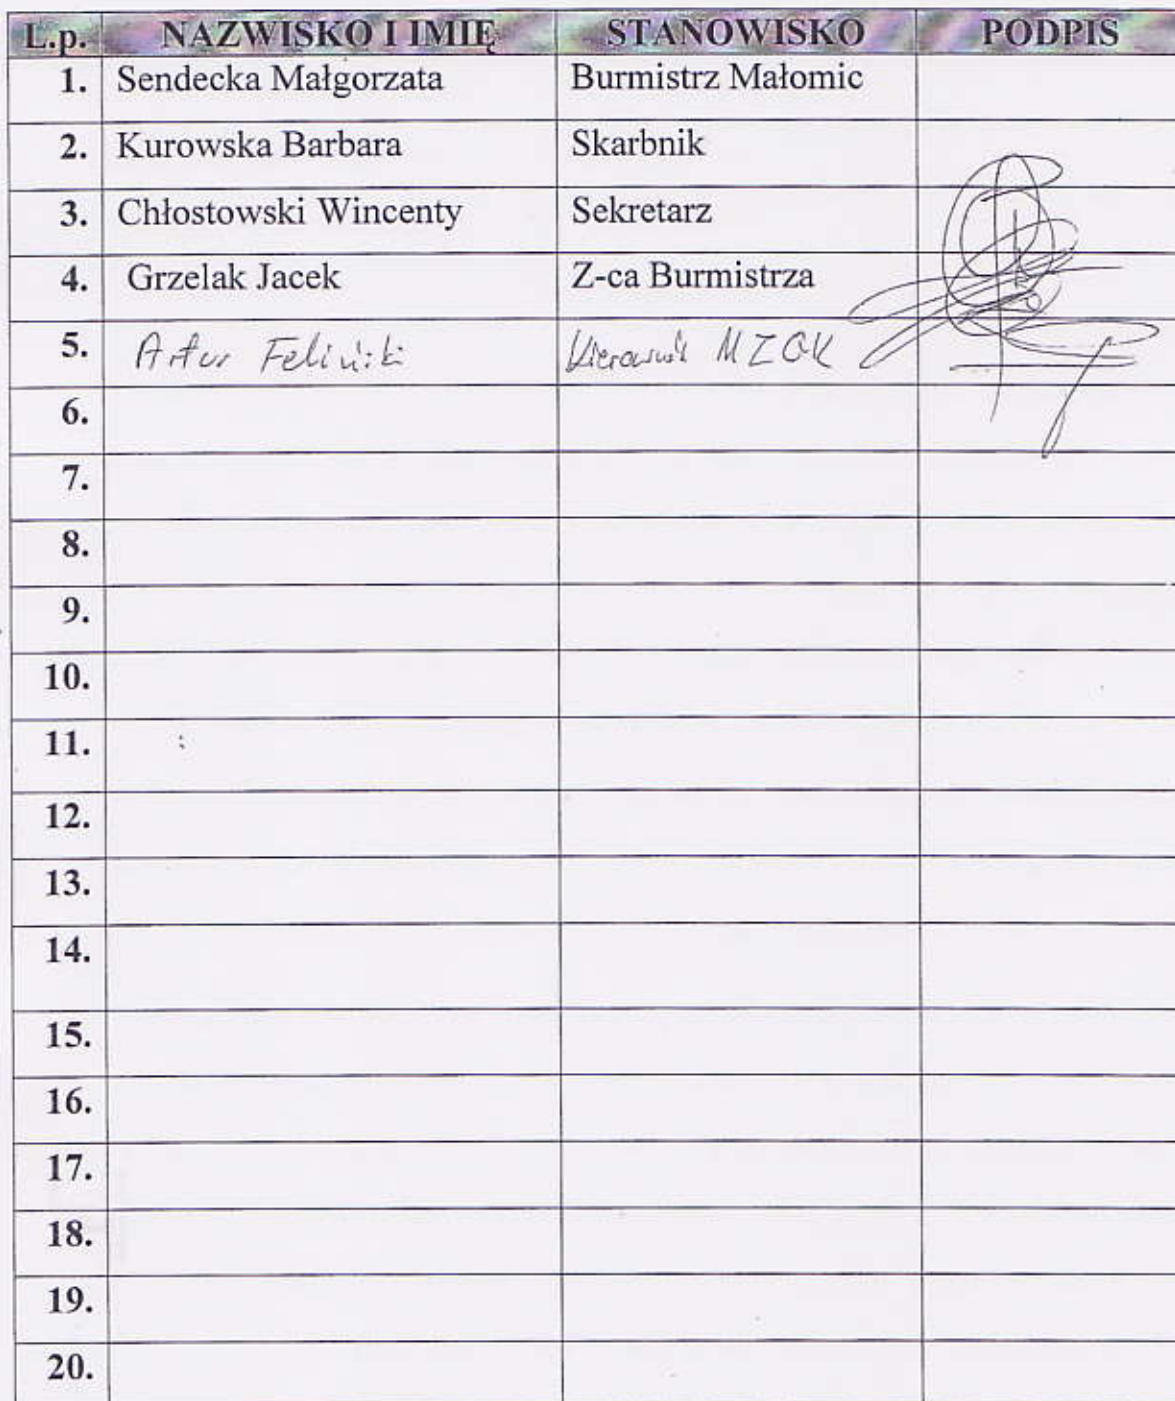 L.p. NAZWISKO I IMIĘ STANOWISKO PODPIS
1. Sendecka Małgorzata Burmistrz Małomic
2. Kurowska Barbara Skarbnik
3. Chłostowski Wincenty Sekretarz
4. Grzelak Jacek Z-ca Burmistrza
5. Artur Feliński Kierownik MZGK
6.
7.
8.
9.
10.
11.
12.
13.
14.
15.
16.
17.
18.
19.
20.